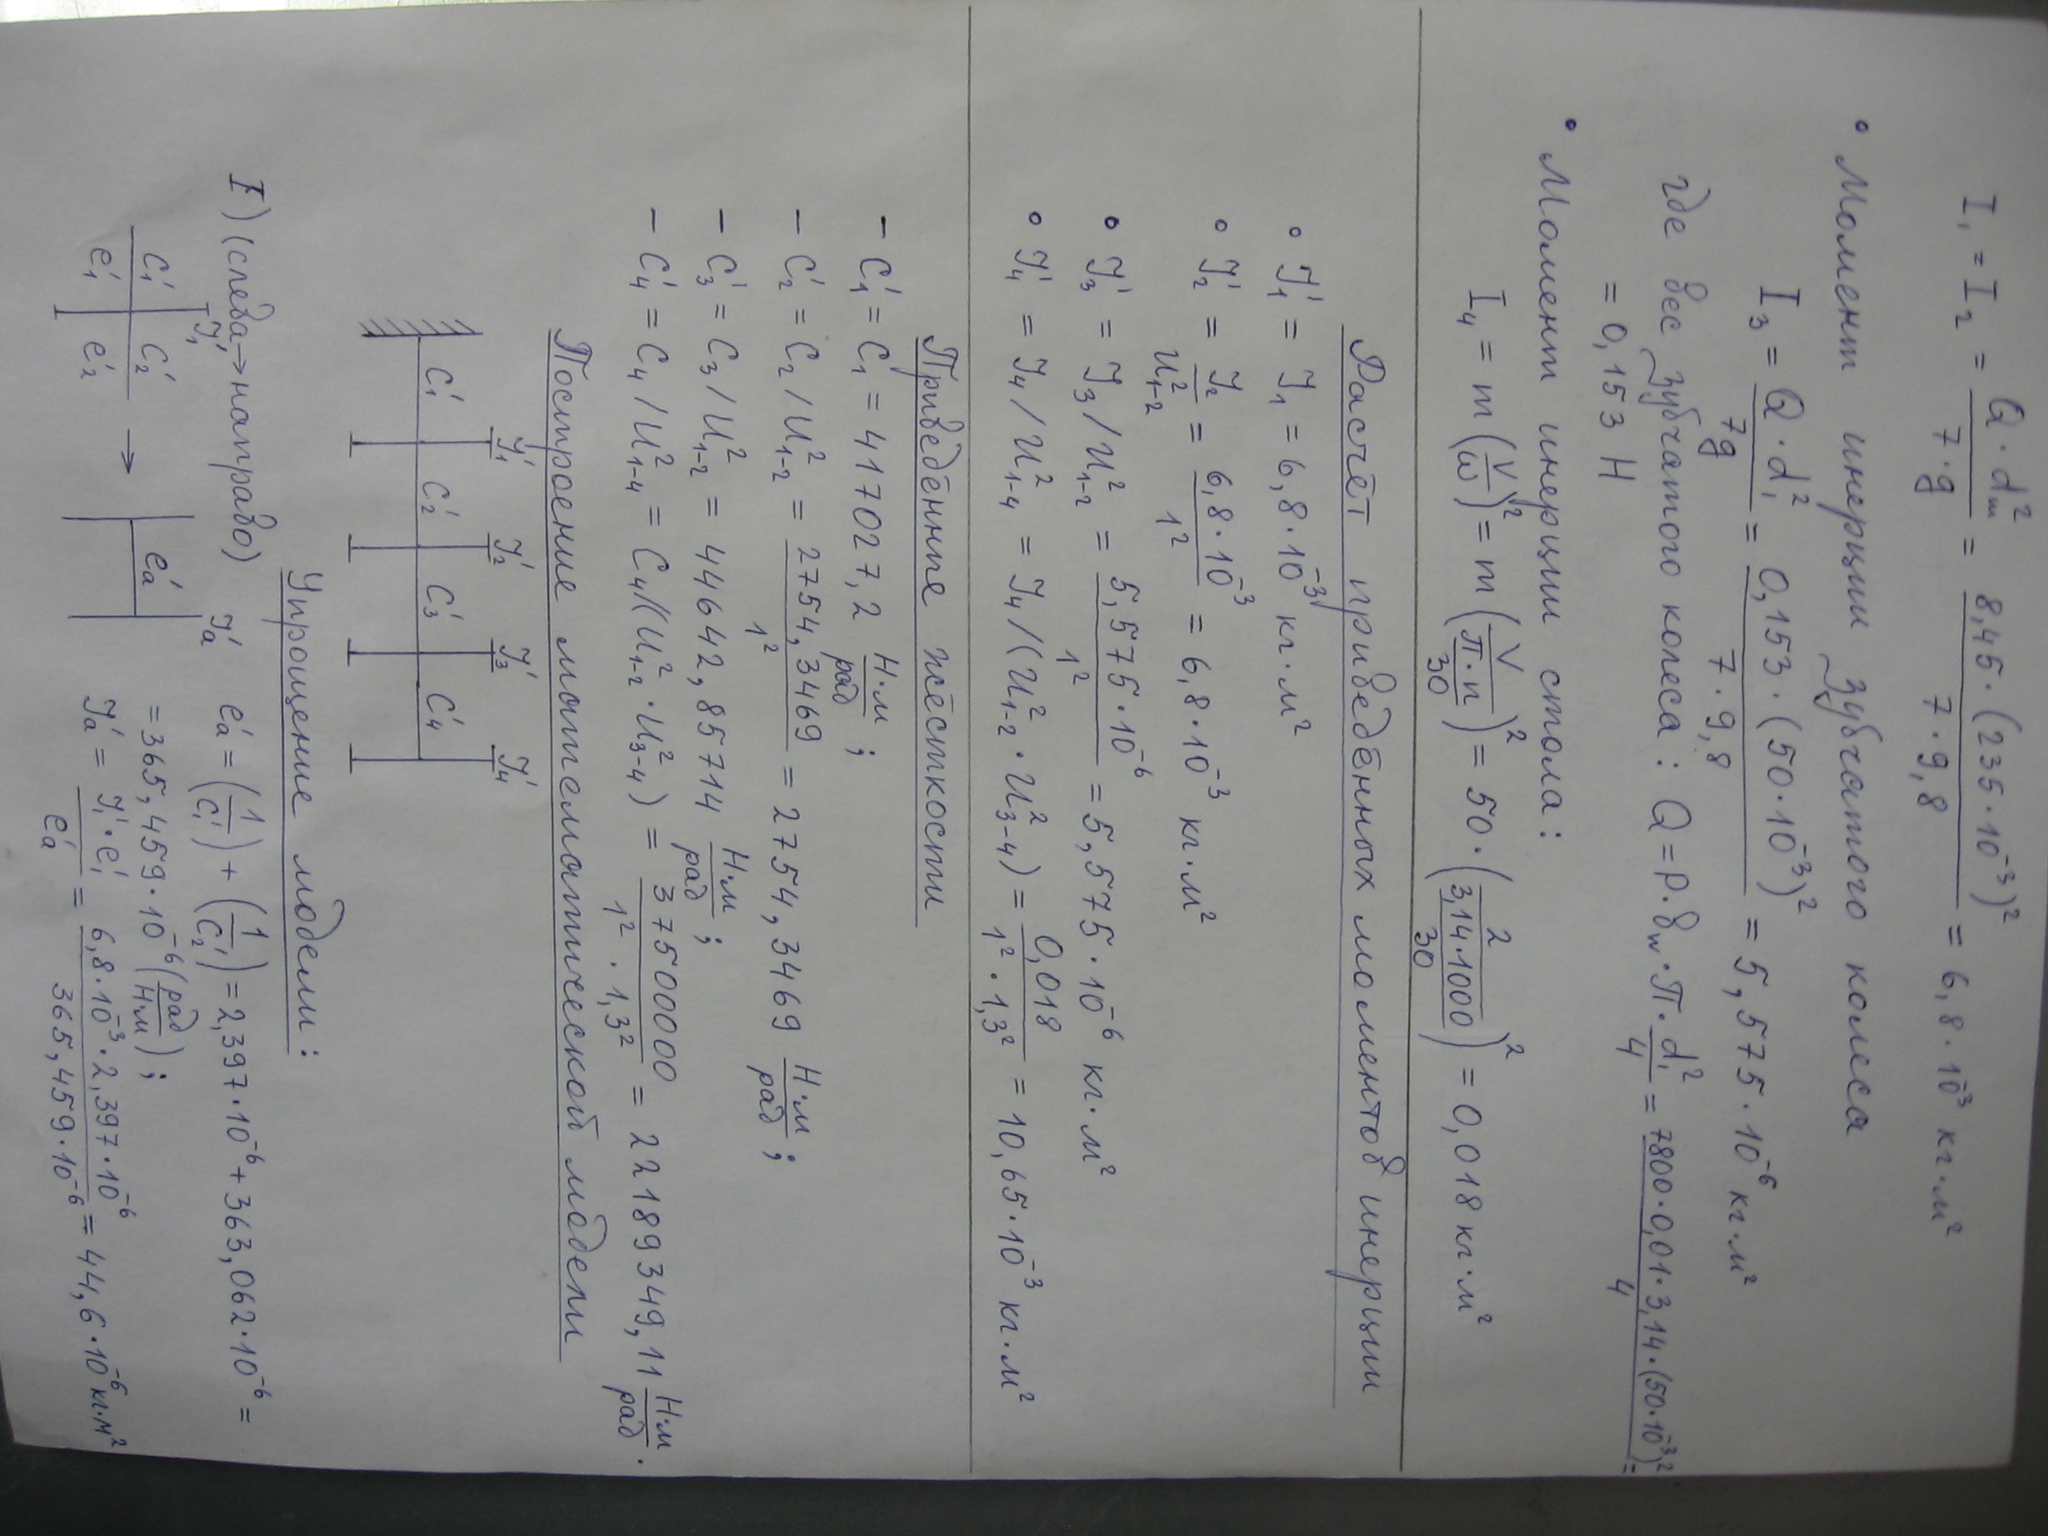 I₁ = I₂ = Q · dₘ² / 7 · g = 8,45 · (235 · 10⁻³)² / 7 · 9,8 = 6,8 · 10⁻³ кг·м²
• Момент инерции зубчатого колеса
I₃ = Q · d₁² / 7g = 0,153 · (50 · 10⁻³)² / 7 · 9,8 = 5,575 · 10⁻⁶ кг·м²
где вес зубчатого колеса : Q = ρ · bw · π · d₁² / 4 = 7800 · 0,01 · 3,14 · (50·10⁻³)² / 4 =
= 0,153 Н
• Момент инерции стола :
I₄ = m (V / ω)² = m (V / (π · n / 30))² = 50 · (2 / (3,14 · 1000 / 30))² = 0,018 кг·м²
Расчёт приведённых моментов инерции
• J₁' = J₁ = 6,8 · 10⁻³ кг·м²
• J₂' = J₂ / U²₁₋₂ = 6,8 · 10⁻³ / 1² = 6,8 · 10⁻³ кг·м²
• J₃' = J₃ / U²₁₋₂ = 5,575 · 10⁻⁶ / 1² = 5,575 · 10⁻⁶ кг·м²
• J₄' = J₄ / U²₁₋₄ = J₄ / (U²₁₋₂ · U²₃₋₄) = 0,018 / 1² · 1,3² = 10,65 · 10⁻³ кг·м²
Приведённые жёсткости
– C₁' = C₁ = 417027,2 Н·м / рад ;
– C₂' = C₂ / U²₁₋₂ = 2754,3469 / 1² = 2754,3469 Н·м / рад ;
– C₃' = C₃ / U²₁₋₂ = 44642,85714 Н·м / рад ;
– C₄' = C₄ / U²₁₋₄ = C₄ / (U²₁₋₂ · U²₃₋₄) = 37500000 / 1² · 1,3² = 22189349,11 Н·м / рад .
Построение математической модели
J₁' J₂' J₃' J₄'
C₁' C₂' C₃' C₄'
Упрощение модели :
I) (слева → направо)
J₁' Jа'
C₁' C₂' → eа'
e₁' e₂'
eа' = (1 / C₁') + (1 / C₂') = 2,397 · 10⁻⁶ + 363,062 · 10⁻⁶ =
= 365,459 · 10⁻⁶ (рад / Н·м) ;
Jа' = J₁' · e₁' / eа' = 6,8 · 10⁻³ · 2,397 · 10⁻⁶ / 365,459 · 10⁻⁶ = 44,6 · 10⁻⁶ кг·м²